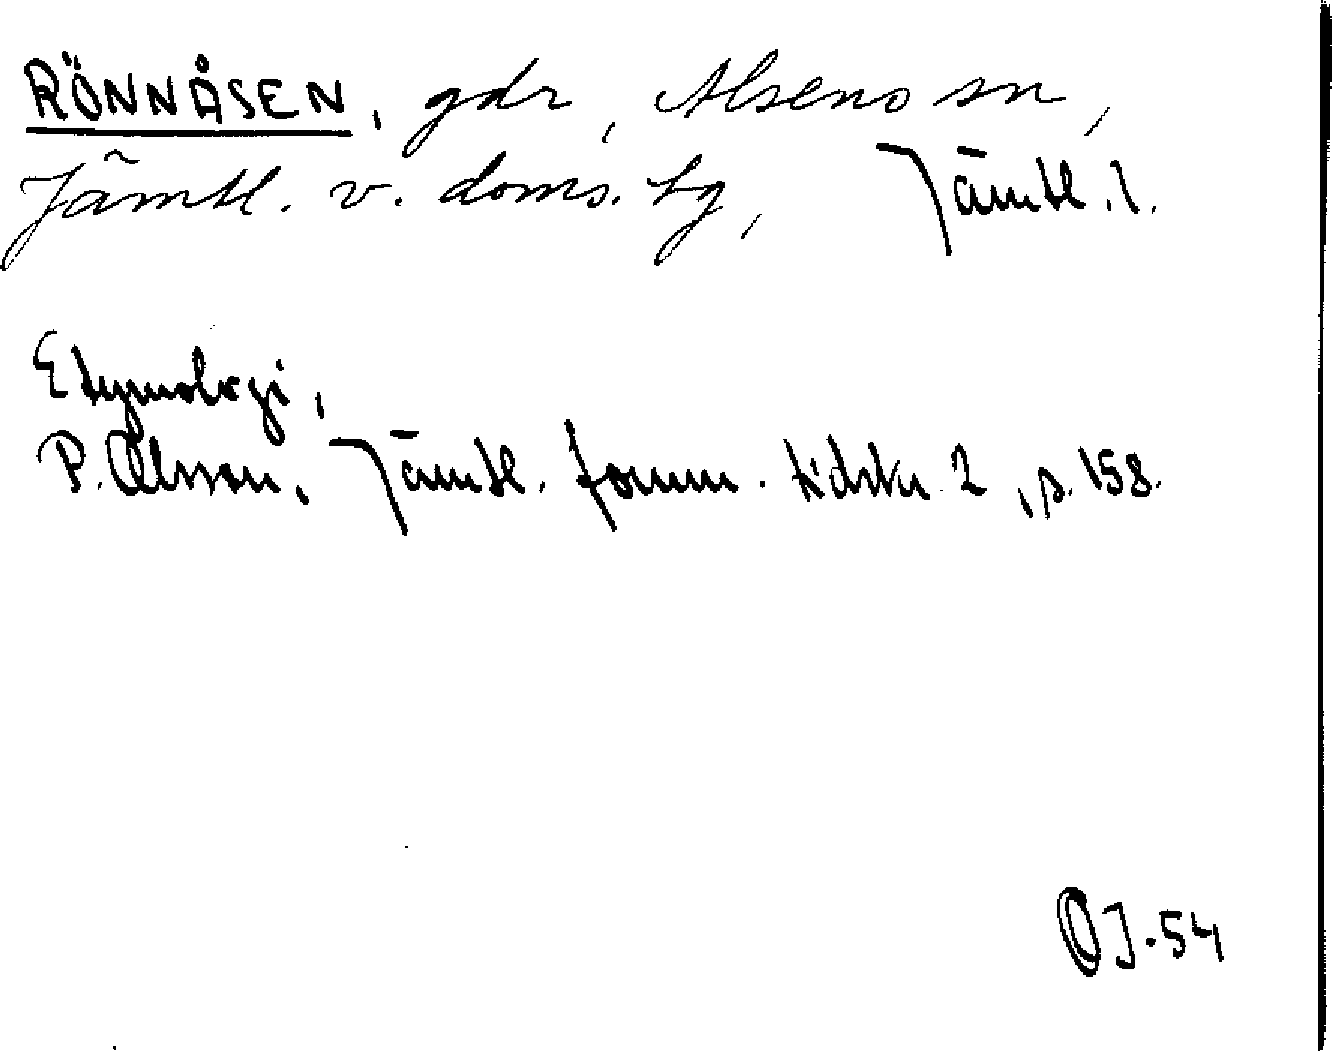 RÖNNÅSEN, gdr, Alsens sn,
Jämtl. v. doms. tg, Jämtl. l.
Etymologi,
P. Olsson, Jämtl. fornm. tidskr. 2, s. 158.
OJ-54